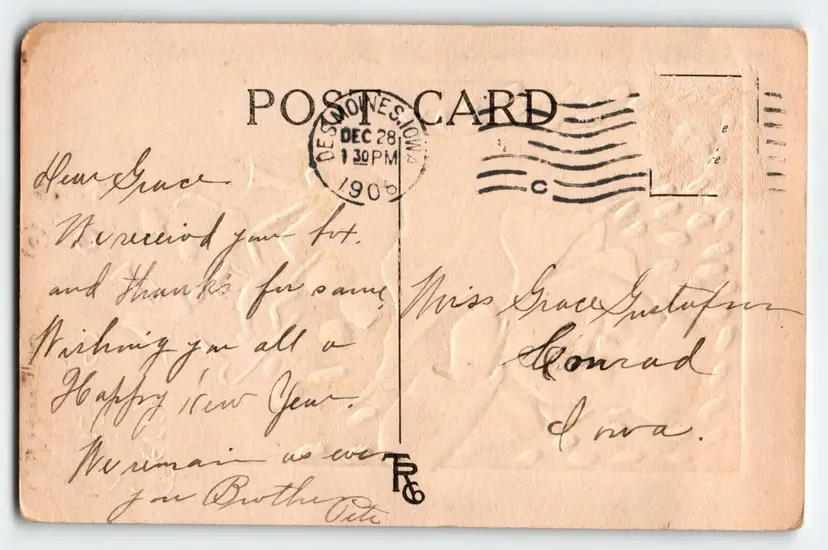 POST CARD
DES MOINES, IOWA
DEC 28
1 30 PM
1908
C
e
re
Dear Grace
We receiod your box.
and thanks for same,
Wishing you all a
Happy New Year.
We remain as ever
your Brother Pete
Miss Grace Gustafson
Conrad
Iowa.
TRG